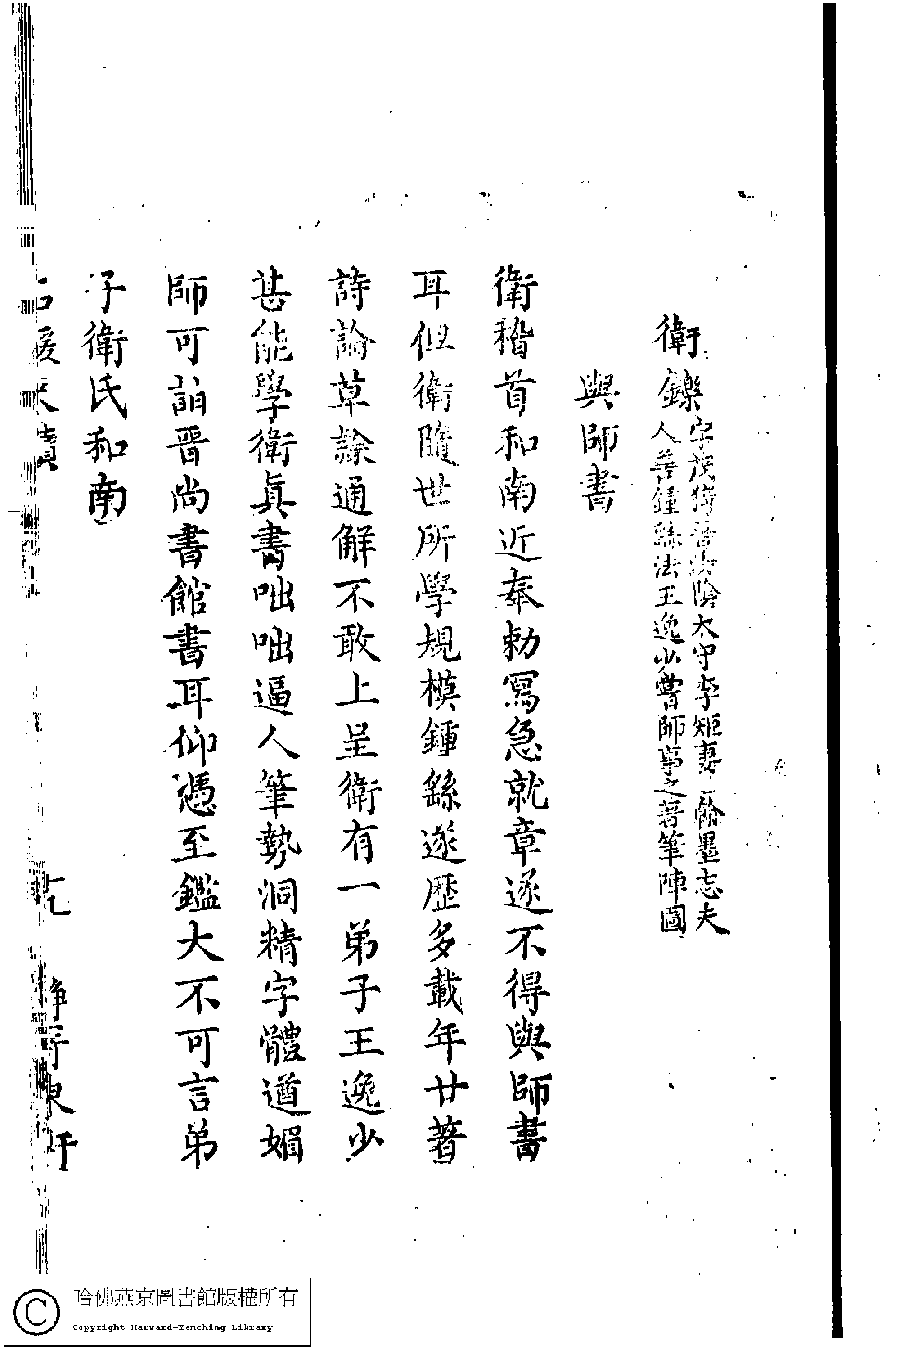 衛鑠字茂猗晉汝陰太守李矩妻一翰墨志夫
人善鍾繇法王逸少嘗師事之著筆陣圖
與師書
衛稽首和南近奉勑寫急就章遂不得與師書
耳但衛隨世所學規模鍾繇遂歷多載年廿著
詩論草隸通解不敢上呈衛有一弟子王逸少
甚能學衛真書咄咄逼人筆勢洞精字體遒媚
師可詣晉尚書館書耳仰憑至鑑大不可言弟
子衛氏和南
哈佛燕京圖書館版權所有
Copyright Harvard-Yenching Library